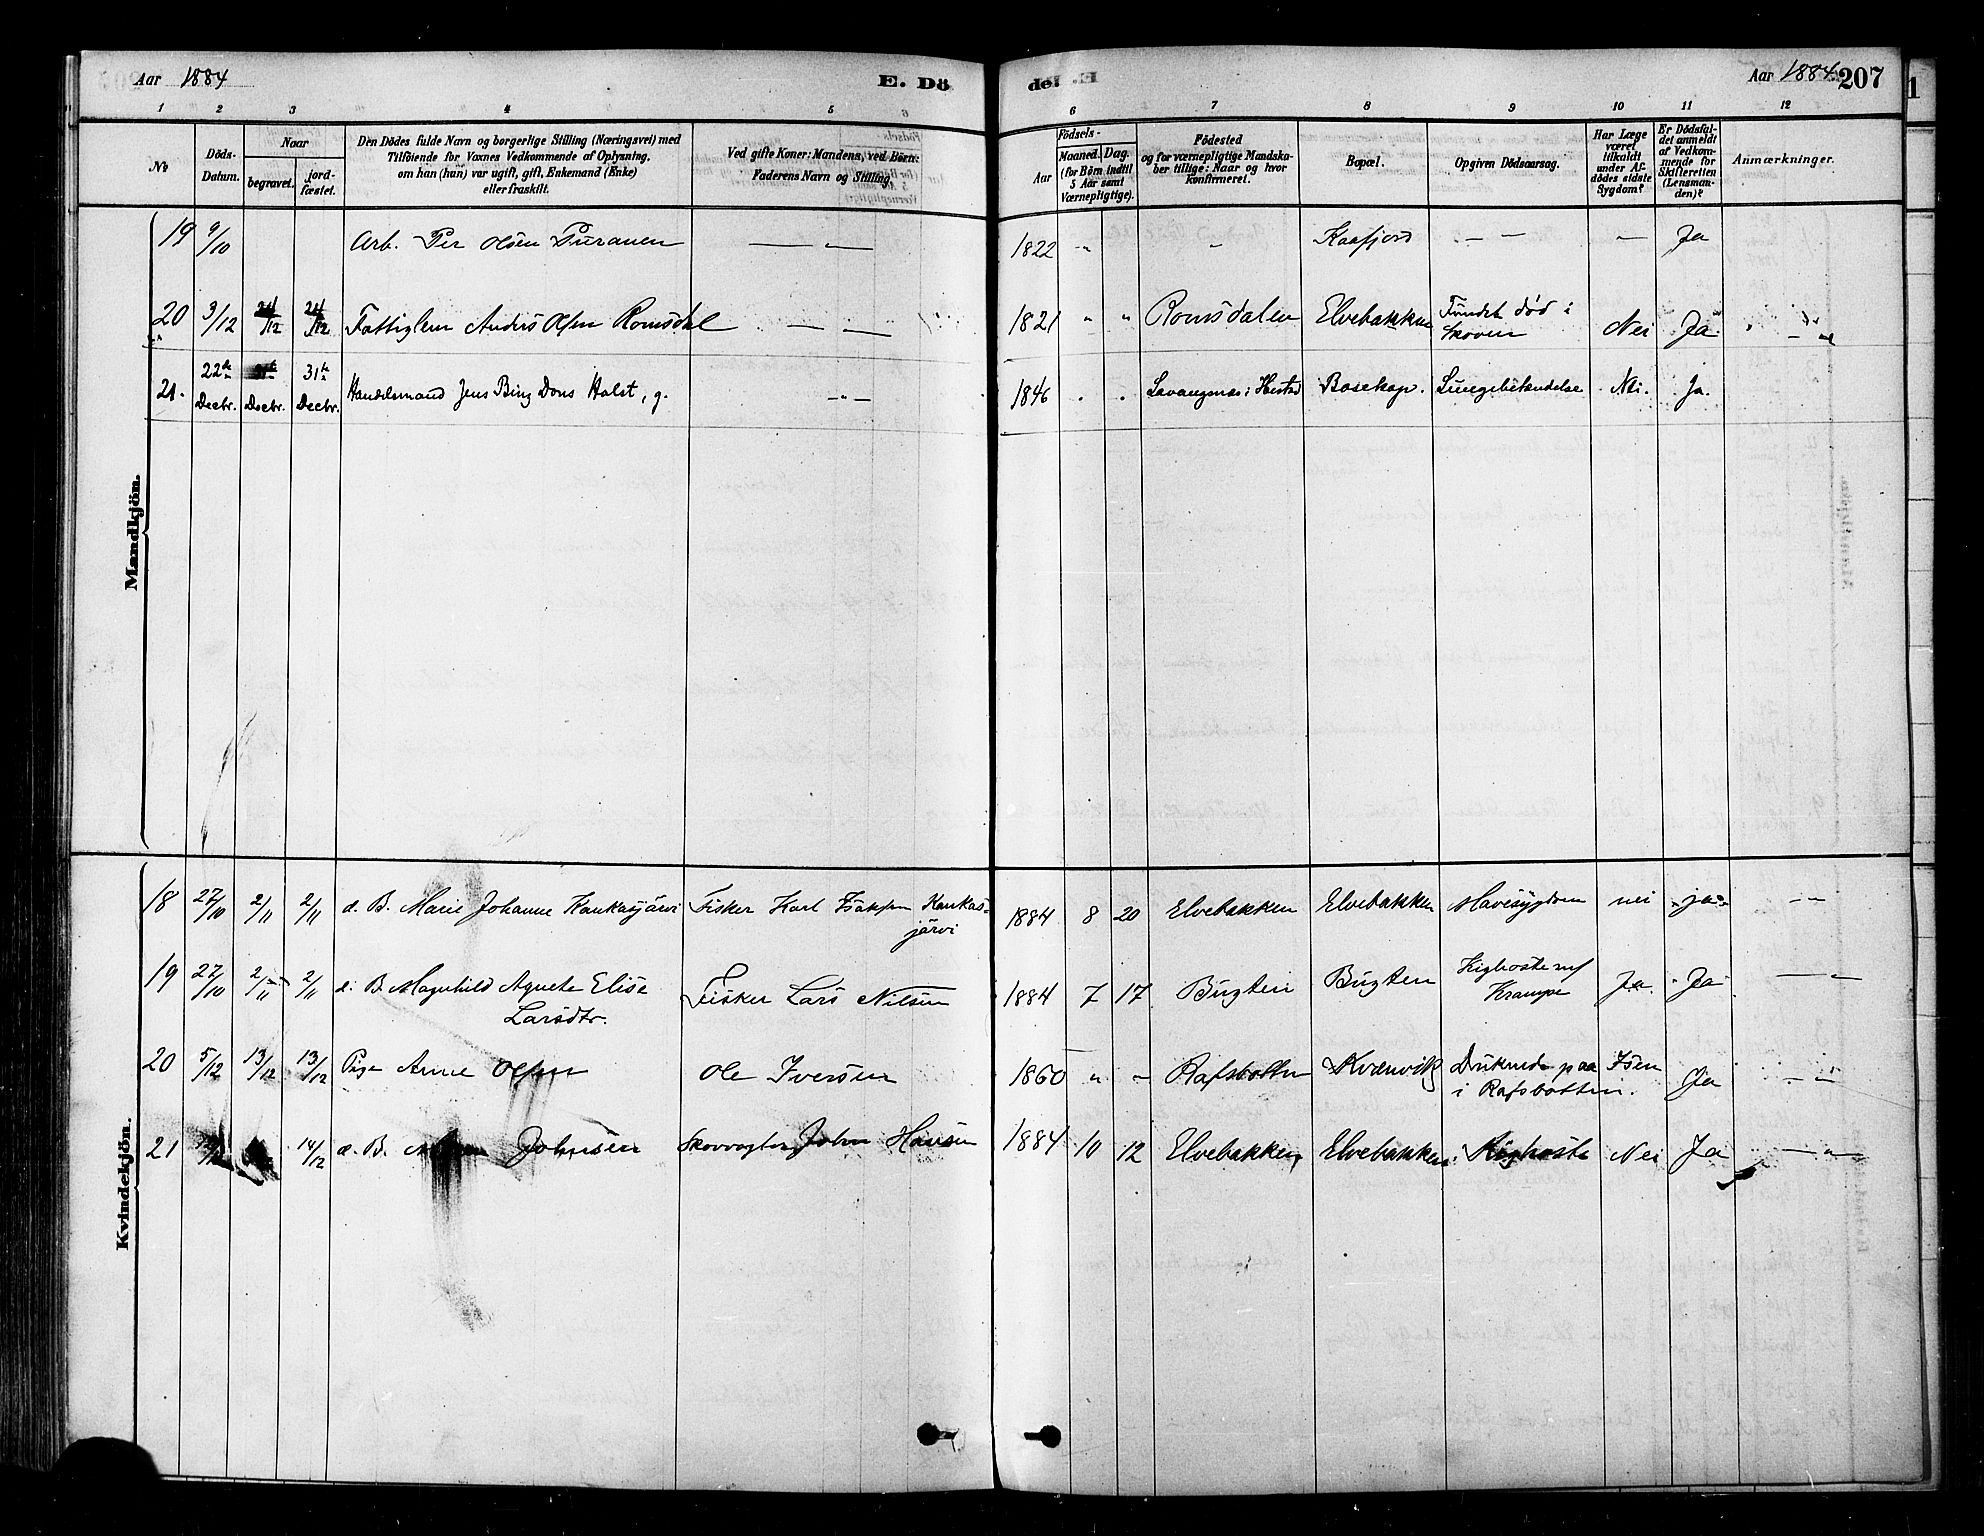 Aar 1884 E. Dö
del. Aar 1884 207
1 2 3 4 5
6 7 8 9 10 11 12
No Döds-Datum. Naar begravet. jordfæstet. Den Dödes fulde Navn og borgerlige Stilling (Næringsvei) med Tilföiende for Voxnes Vedkommende af Oplysning, om han (hun) var ugift, gift, Enkemand (Enke) eller fraskilt. Ved gifte Koner: Mandens, ved Börn: Faderens Navn og Stilling.
Födsels- Aar Maaned. Dag. (for Börn indtil 5 Aar samt Værnepligtige). Födested og for værnepligtige Mandskaber tillige: Naar og hvor Konfirmeret. Bopæl. Opgiven Dödsaarsag. Har Læge været tilkaldt under Afdödes sidste Sygdom? Er Dödsfaldet anmeldt af Vedkommende for Skifteretten (Lensmanden)? Anmærkninger.
Mandkjön.
19 9/10 Arb. Per Olsen Puranen — " —
1822 " " Kaafjord — — — Ja
20 3/12 24/12 24/12 Fattiglem Anders Olsen Romsdal — " —
1821 " " Romsdalen Elvebakken Fundet död i Skoven Nei Ja — " —
21. 22de Decbr. Decbr. 31te Decbr. Handelsmand Jens Bing Dons Holst, g. — " —
1846 " " Bosekop. Lungebetændelse Nei. Ja.
Kvindekjön.
18 27/10 2/11 2/11 d. B. Marie Johanne Kaukasjärvi Fisker Karl Isaksen Kaukasjärvi
1884 8 20 Elvebakken Elvebakken Mavesygdom nei ja — " —
19 27/10 2/11 2/11 d. B. Magnhild Agnete Elise Larsdtr. Fisker Lars Nilsen
1884 7 17 Bugten Bugten Kighoste m/ Krampe Ja Ja — " —
20 5/12 13/12 13/12 Pige Anne Olsen Ole Iversen
1860 " " Rafsbotten Kvænvik Druknede paa Isen i Rafsbotten. Ja — " —
21 14/12 d. B. Johnsen Skovvogter John Hansen
1884 10 12 Elvebakken Elvebakken Kighoste Nei Ja — " —